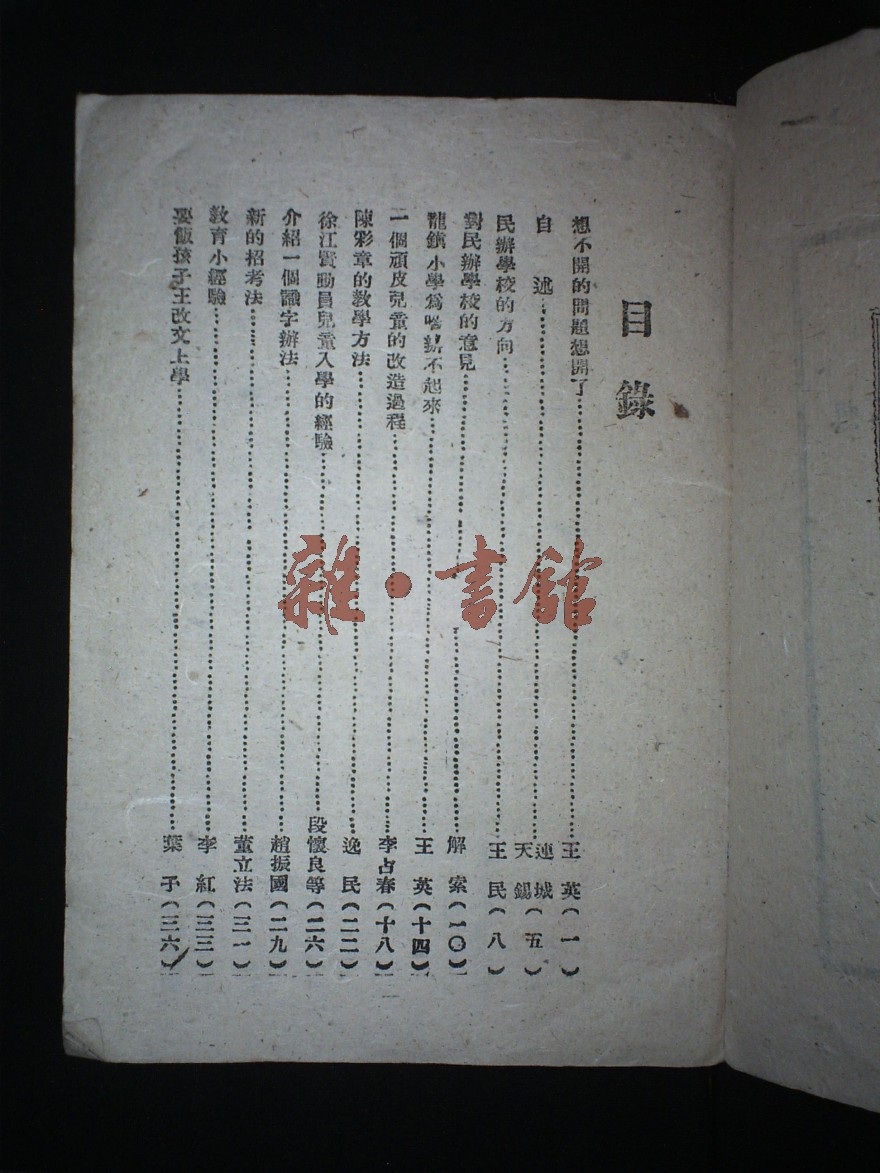 目錄
想不開的問題想開了……王英(一)
自述……連城 天錫(五)
民辦學校的方向……王民(八)
對民辦學校的意見……解索(一〇)
龍鎮小學爲啥辦不起來……王英(十四)
一個頑皮兒童的改造過程……李占春(十八)
陳彩章的教學方法……逸民(二二)
徐江賢動員兒童入學的經驗……段懷良等(二六)
介紹一個識字辦法……趙振國(二九)
新的招考法……董立法(三一)
教育小經驗……李紅(三三)
要飯孩子王改文上學……葉子(三六)
一
雜·書館